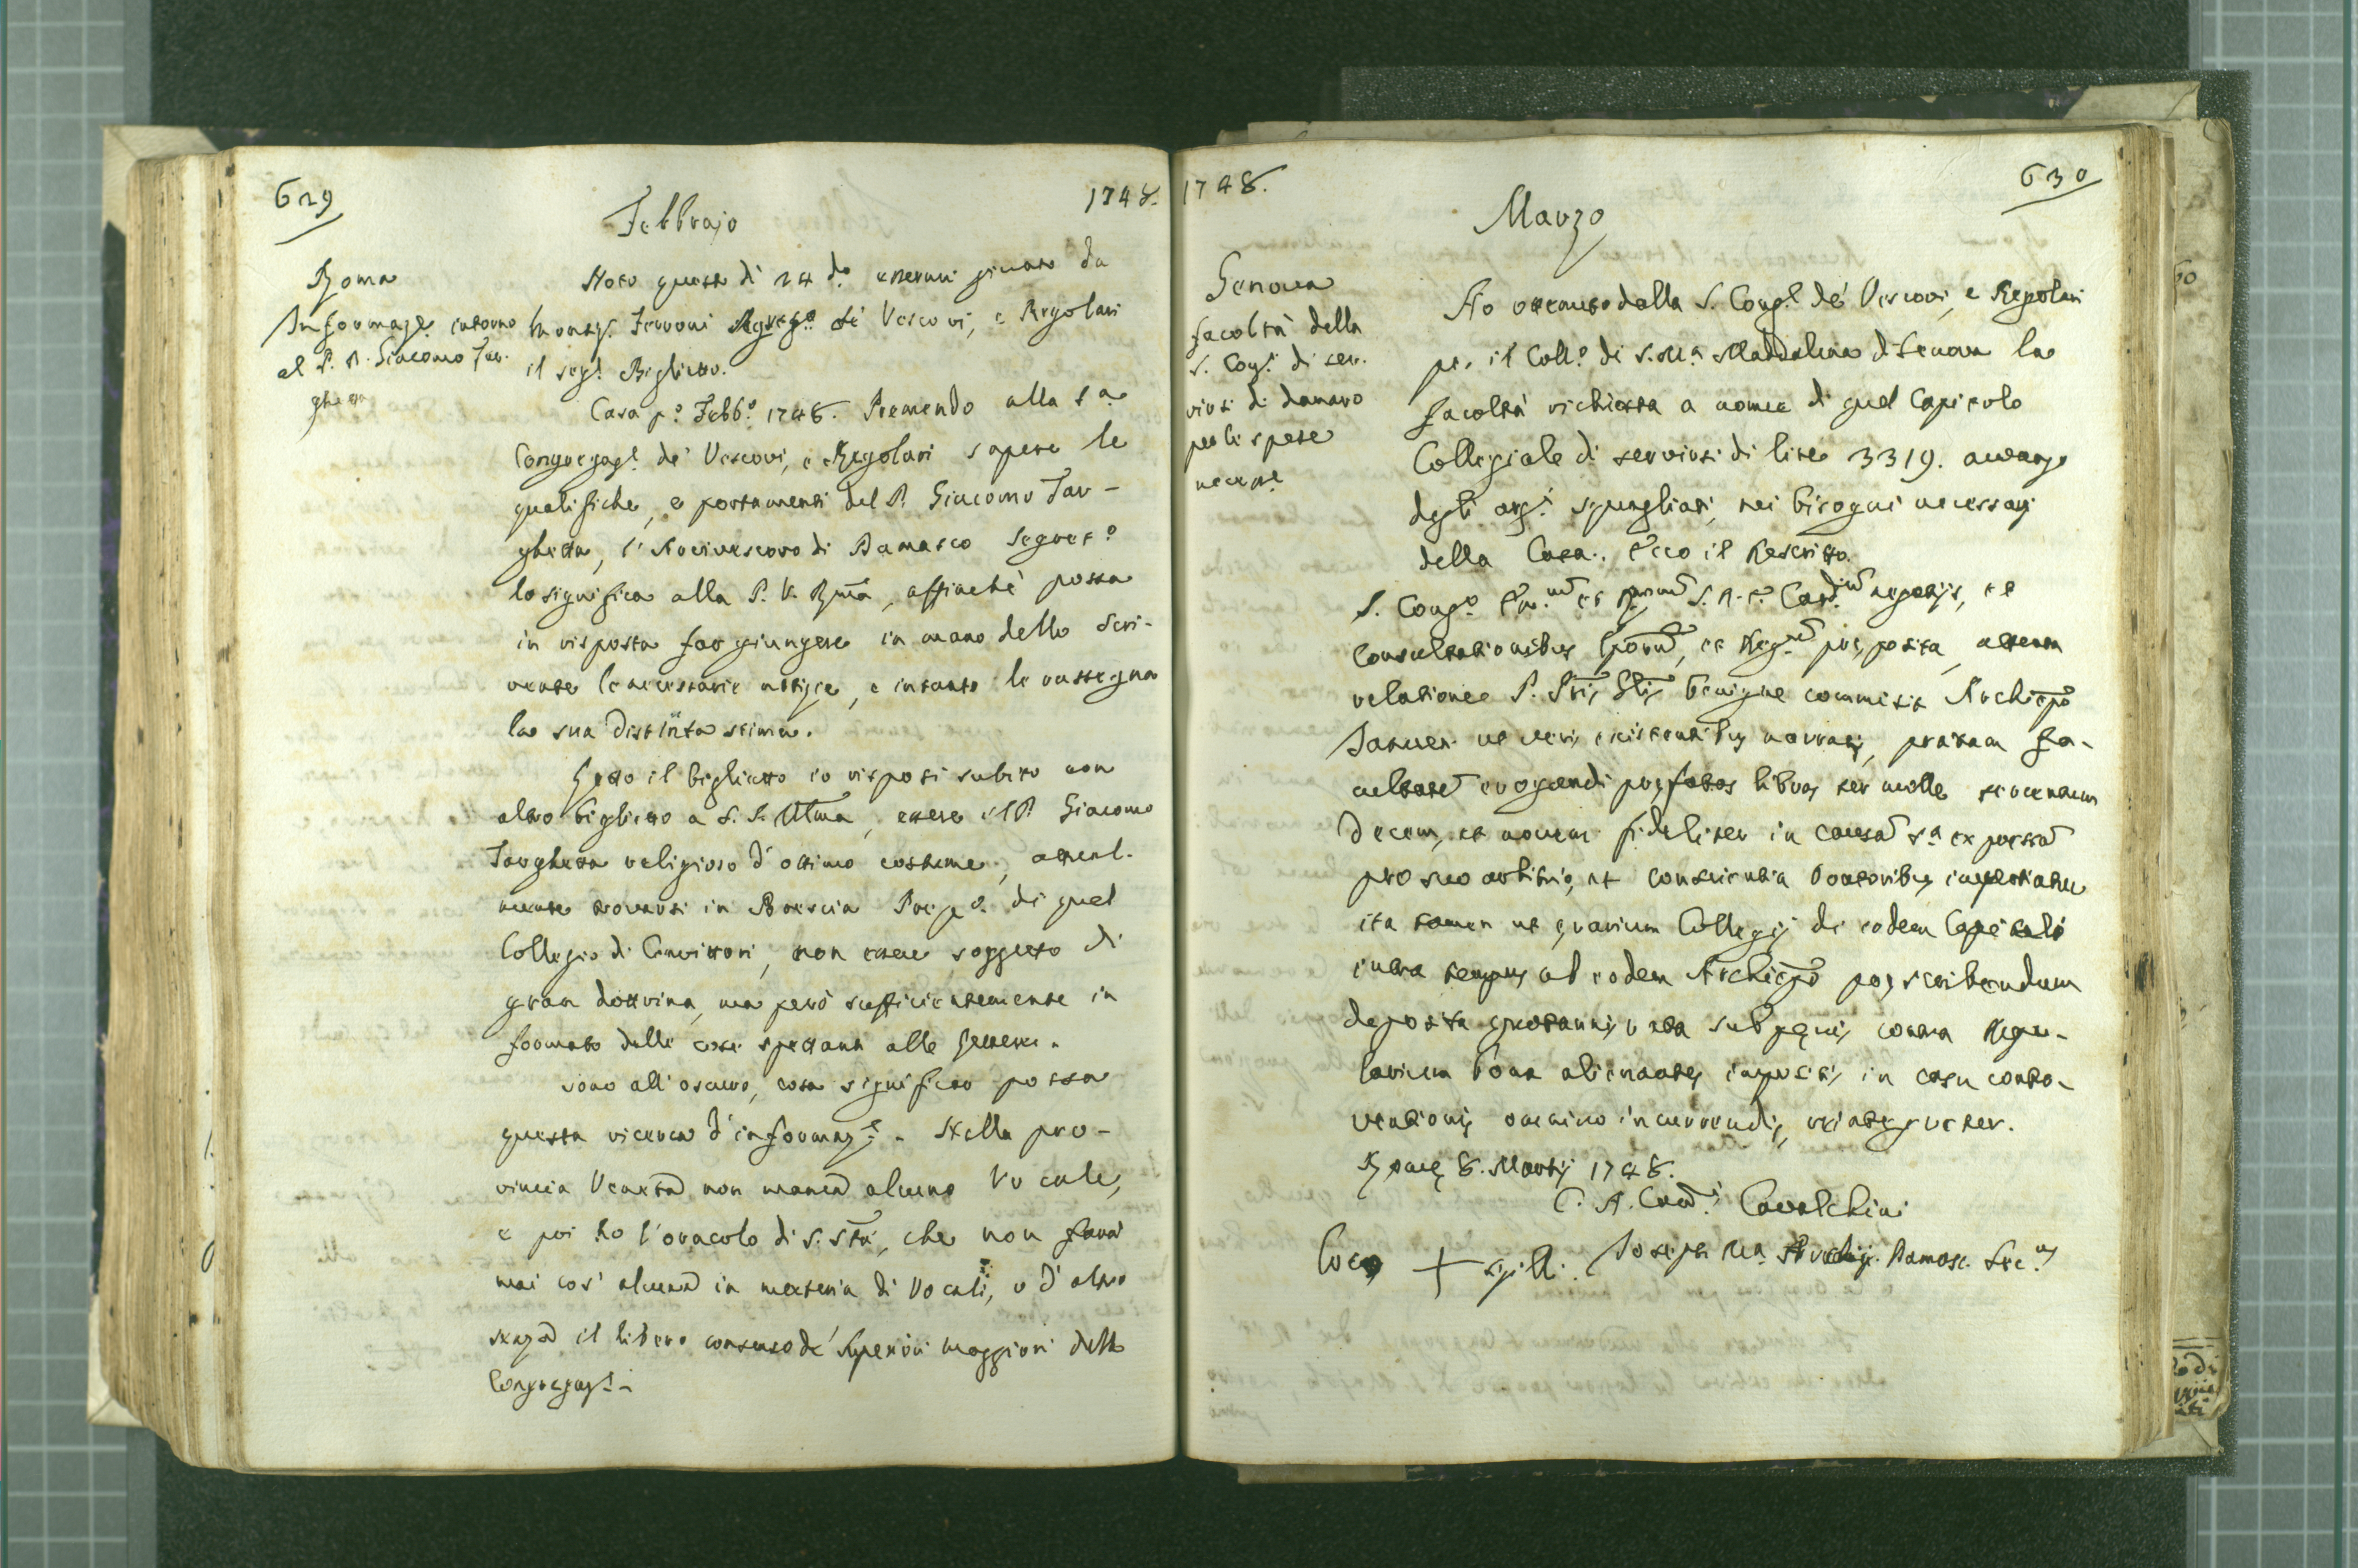 629
1748.
Febbrajo
Roma
Informaz.e intorno
al P. D. Giacomo Tar-
ghetta
Noto questa dì 24 do. essermi giunto da
Monsig.r Ferroni Segreto. de' Vescovi, e Regolari
il seg.te Biglietto.
Casa po. Febbo. 1748. Premendo alla Sa.
Congregaz.e de' Vescovi, e Regolari sapere le
qualifiche, e portamenti del P. Giacomo Tar-
ghetta, l'Arcivescovo di Damasco Segreto.
lo significa alla P. V. Rma, affinchè possa
in risposta far giungere in mano dello Scri-
vente le necessarie notizie, e intanto le rassegna
la sua distinta stima.
Letto il biglietto io risposi subito con
altro biglietto a S. S. Illma, essere il P. Giacomo
Targhetta religioso d'ottimo costume, attual-
mente trovarsi in Brescia Prepo. di quel
Collegio di Convittori, non essere soggetto di
gran dottrina, ma però sufficientemente in
formato delle cose spettanti alle lettere.
Sono all'oscuro, cosa significar possa
questa ricerca d'informaz.e. Nella pro-
vincia Veneta non manca alcuno Vocale,
e poi ho l'oracolo di S. Stà, che non farà
mai cos' alcuna in materia di Vocali, o d'altro
senza il libero consenso de' Superiori maggiori della
Congregaz.e
1748.
630
Marzo
Genova
facoltà della
S. Cong.e di ser-
virsi di danaro
per le spese
necess.e
Ho ottenuto dalla S. Cong.e de' Vescovi, e Regolari
per il Collo. di S. Ma. Maddalena di Genova la
facoltà richiesta a nome di quel Capitolo
Collegiale di servirsi di lire 3319. avanzo
degli arg.ti squagliati, nei bisogni necessarj
della Casa. Ecco il Rescritto.
S. Congo. Em.um et Rmorum S. R. E. Card.ium negotijs, et
Consultationibus Eporum, et Reg.rium præposita, attenta
relatione P. Pris Glis benigne commisit Archiepo
Januen. ut veris existentibus narratis, præsam fa-
cultatem erogandi præfatas libras ter mille tercentum
decem, et novem fideliter in causam sa. expressam
pro suo arbitrio, et conscientia Oratoribus impertiatur
ita tamen ut ærarium Collegij de eodem Capitulo
intra tempus ab eodem Archiepo præscribendum
deposita quotannis rata sub pœnis contra Regu-
larium bona alienantes impositis, in casu contra-
ventionis omnino incurrendis, reintegretur.
Romæ 8. Martij 1748.
C. A. Card.is Cavalchini
Loco + sigilli. Joseph Ma. Archiep. Damasc. Sec.us